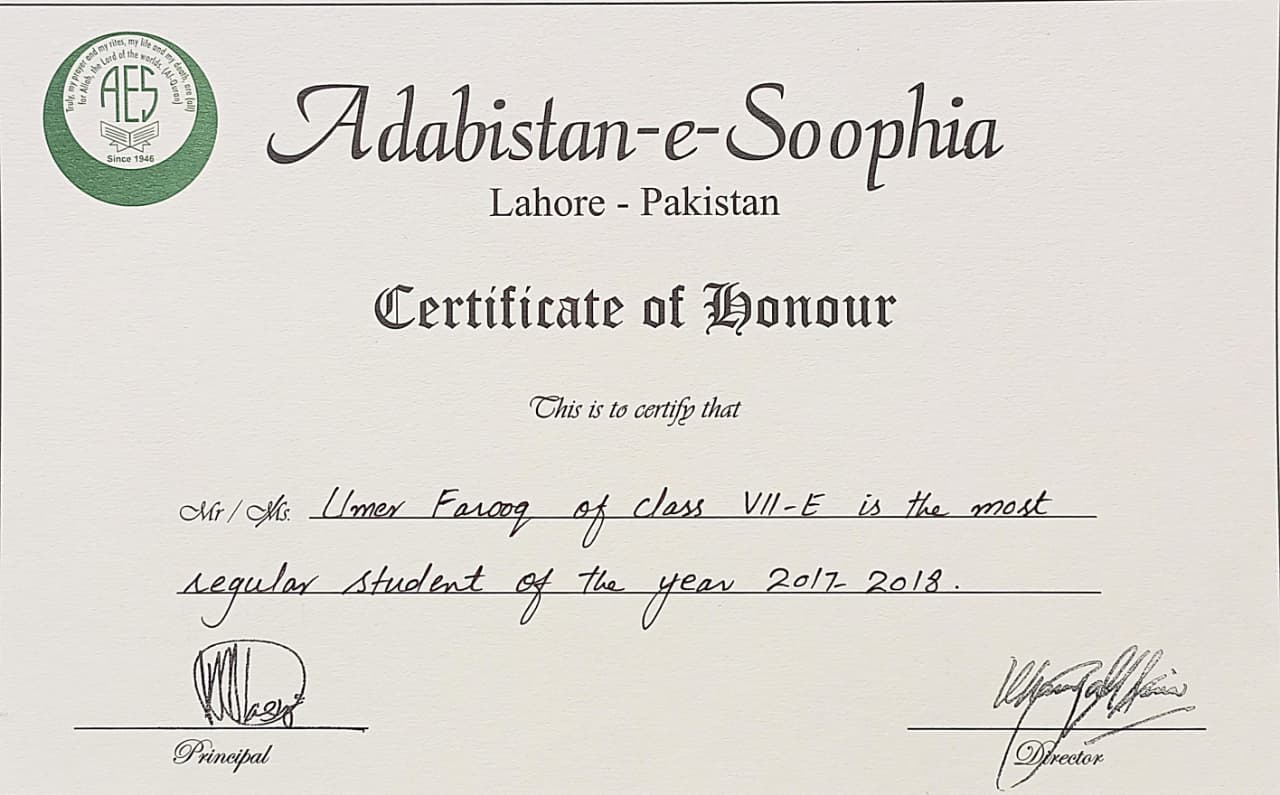 Truly, my prayer and my rites, my life and my death, are (all)
for Allah, the Lord of the worlds. (Al-Quran)
AES
Since 1946
Adabistan-e-Soophia
Lahore - Pakistan
Certificate of Honour
This is to certify that
Mr / Ms. Umer Farooq of class VII-E is the most
regular student of the year 2017-2018.
Principal
Director